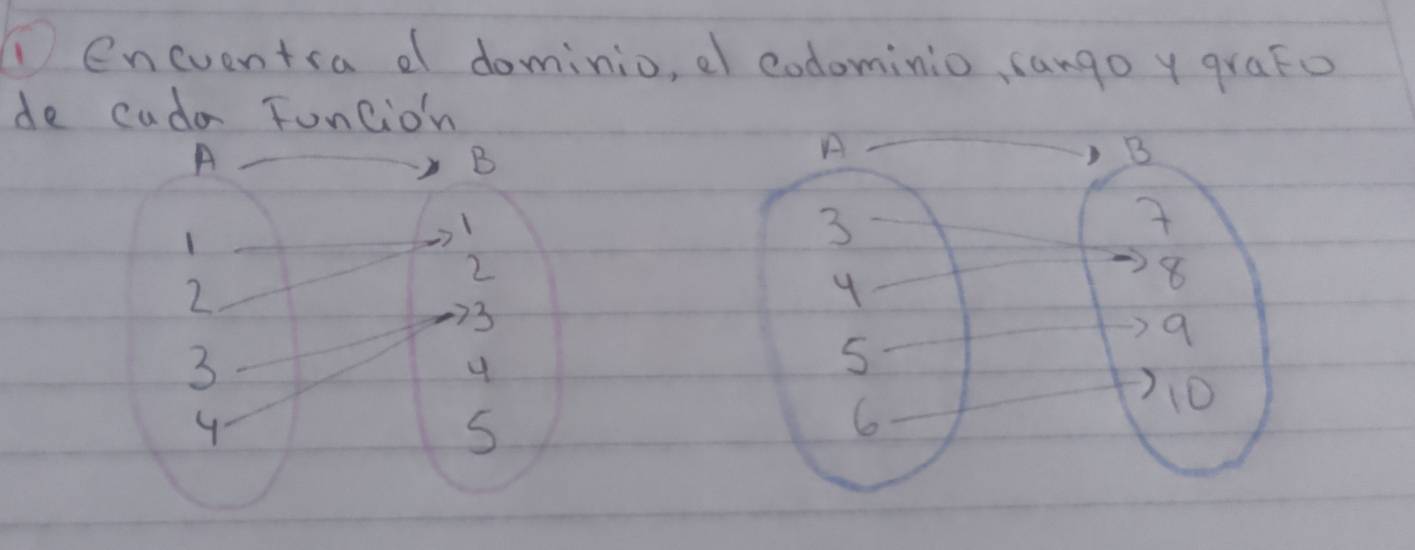 1 Encuentra el dominio, el codominio, rango y grafo
de cada Función
A B
1 1
2 2
3 3
4 4
5
A B
3 7
4 8
5 9
6 10